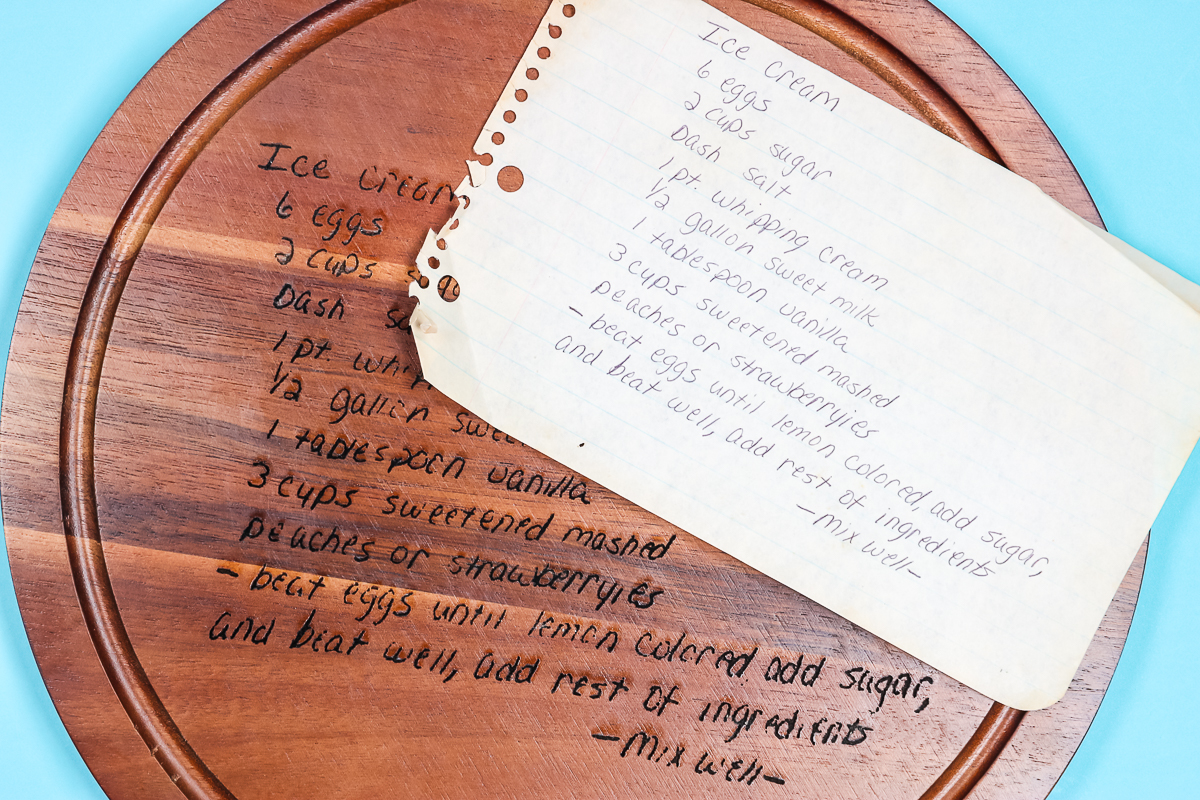 Ice cream
6 eggs
2 cups sugar
Dash salt
1 pt. whipping cream
1/2 gallon sweet milk
1 tablespoon vanilla
3 cups sweetened mashed
peaches or strawberryies
- beat eggs until lemon colored, add sugar,
and beat well, add rest of ingredients
- mix well -
Ice cream
6 eggs
2 cups
Dash
1 pt
1/2 gallon
1 tablespoon vanilla
3 cups sweetened mashed
peaches or strawberryies
- beat eggs until lemon colored add sugar,
and beat well, add rest of ingredients
- mix well -